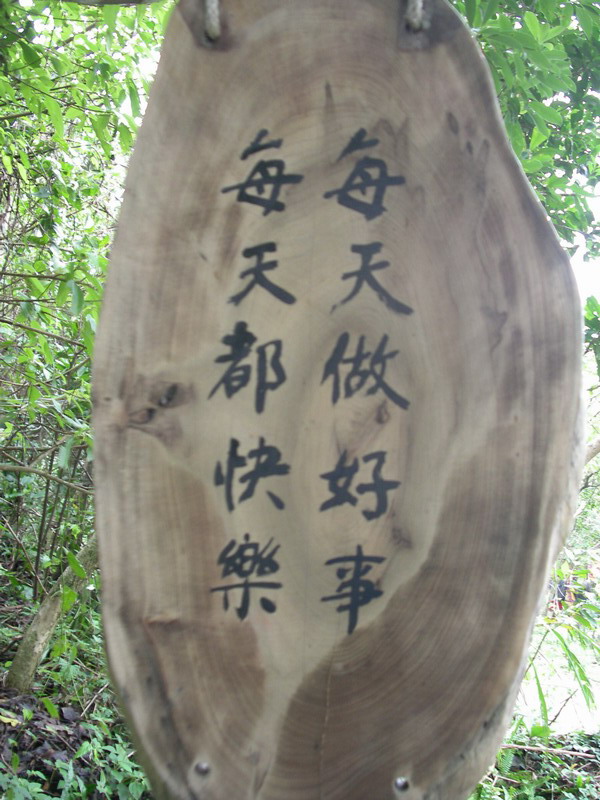 每天做好事
每天都快樂